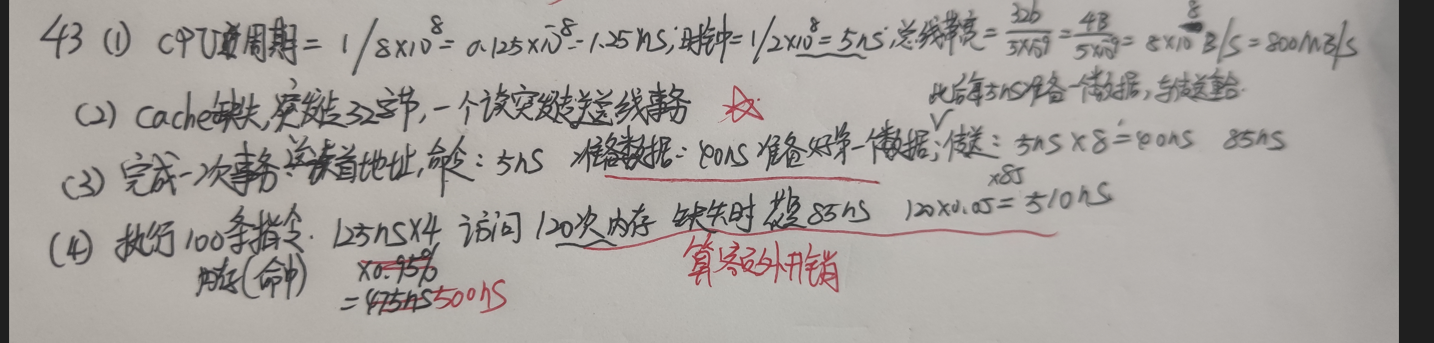 43 (1) CPU周期 = 1/8×10⁸ = 0.125×10⁻⁸ = 1.25ns; 时钟 = 1/2×10⁸ = 5ns; 总线带宽 = 32b/5×10⁻⁹ = 4B/5×10⁻⁹ = 8×10⁸ B/s = 800MB/s
(2) Cache缺失, 突发传送32字节, 一个读突发传送总线事务 ☆
此后每5ns准备一个数据, 与传送重合
(3) 完成一次事务: 首地址, 命令: 5ns 准备数据: 40ns 准备好第一个数据; 传送: 5ns×8=40ns 85ns
(4) 执行100条指令. 125ns×4 访问120次内存 缺失时 85ns 120×0.05 ×85 = 510ns
内存(命中) ×0.95% 算额外开销
= 475ns 500ns